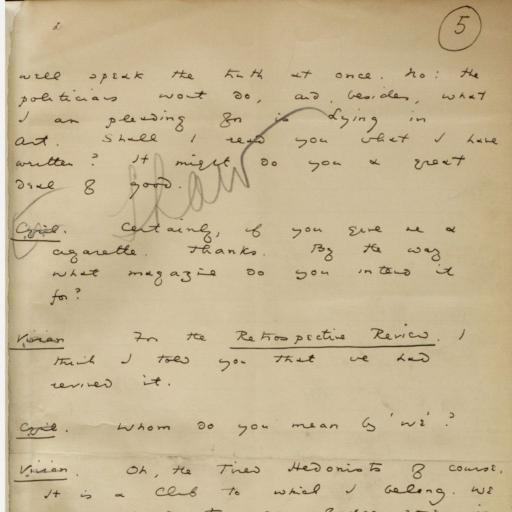 5
well speak the truth at once. No: the
politicians wont do, and, besides, what
I am pleading for is Lying in
Art. Shall I read you what I have
written? It might do you a great
deal of good.
Shaw
Cyril. Certainly, if you give me a
cigarette. Thanks. By the way
what magazine do you intend it
for?
Vivian For the Retrospective Review. I
think I told you that we had
revived it.
Cyril. Whom do you mean by 'we'?
Vivian. Oh, the Tired Hedonists of course.
It is a Club to which I belong. We